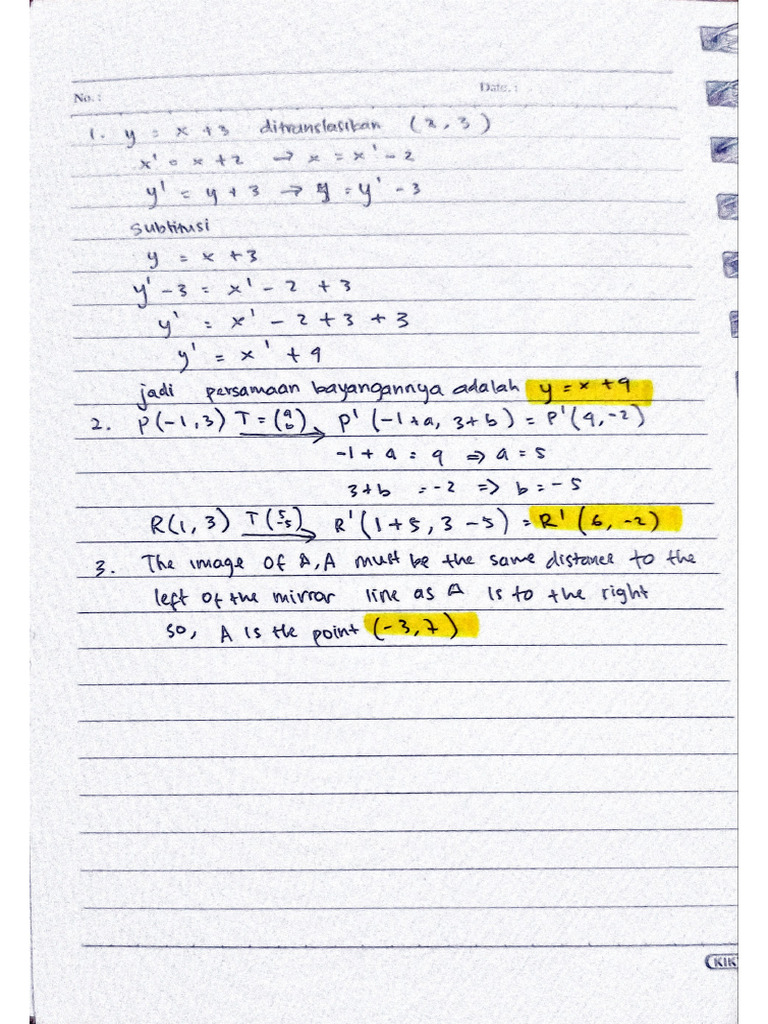 No. :
Date. :
1. y = x + 3 ditranslasikan (2, 3)
x' = x + 2 → x = x' - 2
y' = y + 3 → y = y' - 3
Subtitusi
y = x + 3
y' - 3 = x' - 2 + 3
y' = x' - 2 + 3 + 3
y' = x' + 4
jadi persamaan bayangannya adalah y = x + 4
2. P(-1, 3) T = (a b) → P' (-1 + a, 3 + b) = P' (4, -2)
-1 + a = 4 ⇒ a = 5
3 + b = -2 ⇒ b = -5
R(1, 3) T(5 -5) → R' (1 + 5, 3 - 5) = R' (6, -2)
3. The image of A, A must be the same distance to the
left of the mirror line as A is to the right
so, A is the point (-3, 7)
KIK